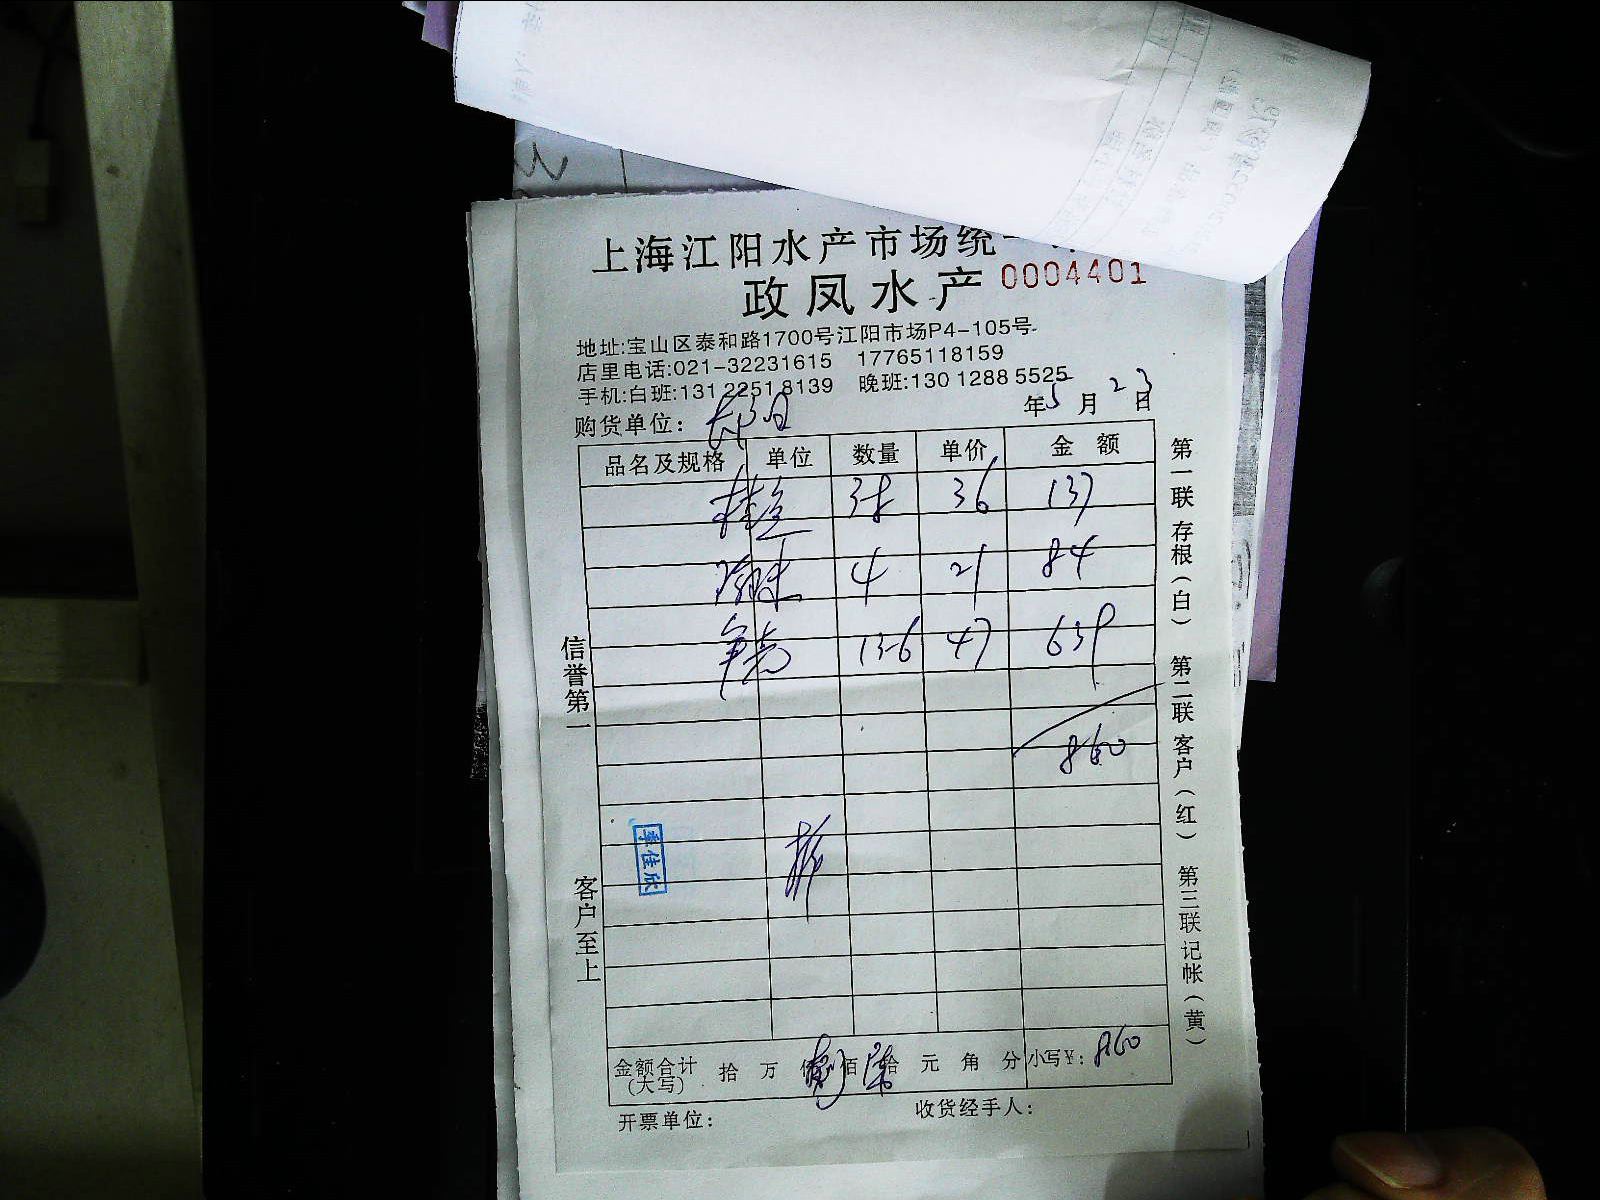 上海江阳水产市场统一
政凤水产 0004401
地址:宝山区泰和路1700号江阳市场P4-105号
店里电话:021-32231615 17765118159
手机:白班:131 2251 8139 晚班:130 1288 5525
购货单位: 年5月23日
品名及规格 单位 数量 单价 金额
桂鱼 38 36 137
4 21 84
13.6 47 639
860
章佳欣
金额合计(大写) 拾 万 仟 佰 拾 元 角 分 小写¥: 860
开票单位: 收货经手人:
信誉第一
客户至上
第一联 存根(白)
第二联 客户(红)
第三联 记帐(黄)